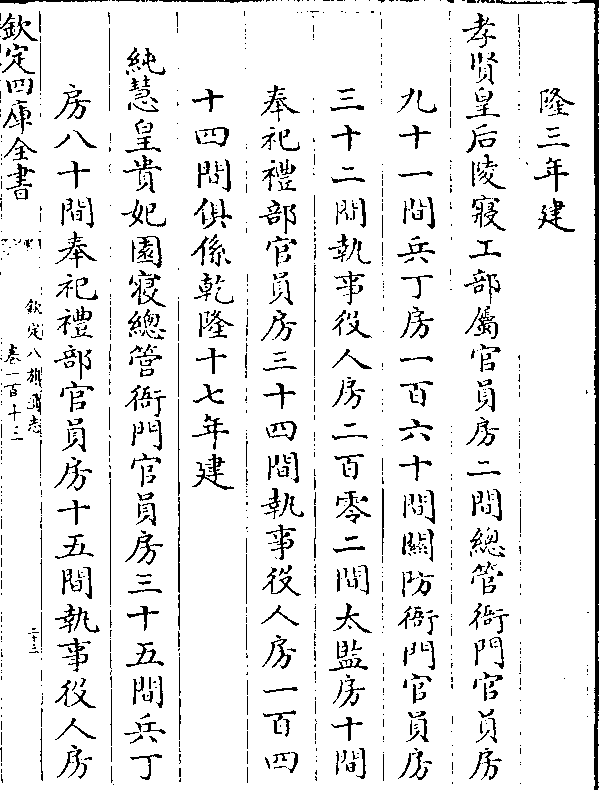 隆三年建
孝賢皇后陵寢工部屬官員房二間總管衙門官員房
九十一間兵丁房一百六十間關防衙門官員房
三十二間執事役人房二百零二間太監房十間
奉祀禮部官員房三十四間執事役人房一百四
十四間俱係乾隆十七年建
純慧皇貴妃園寢總管衙門官員房三十五間兵丁
房八十間奉祀禮部官員房十五間執事役人房
欽定四庫全書
欽定八旗通志
卷一百十三
二十三